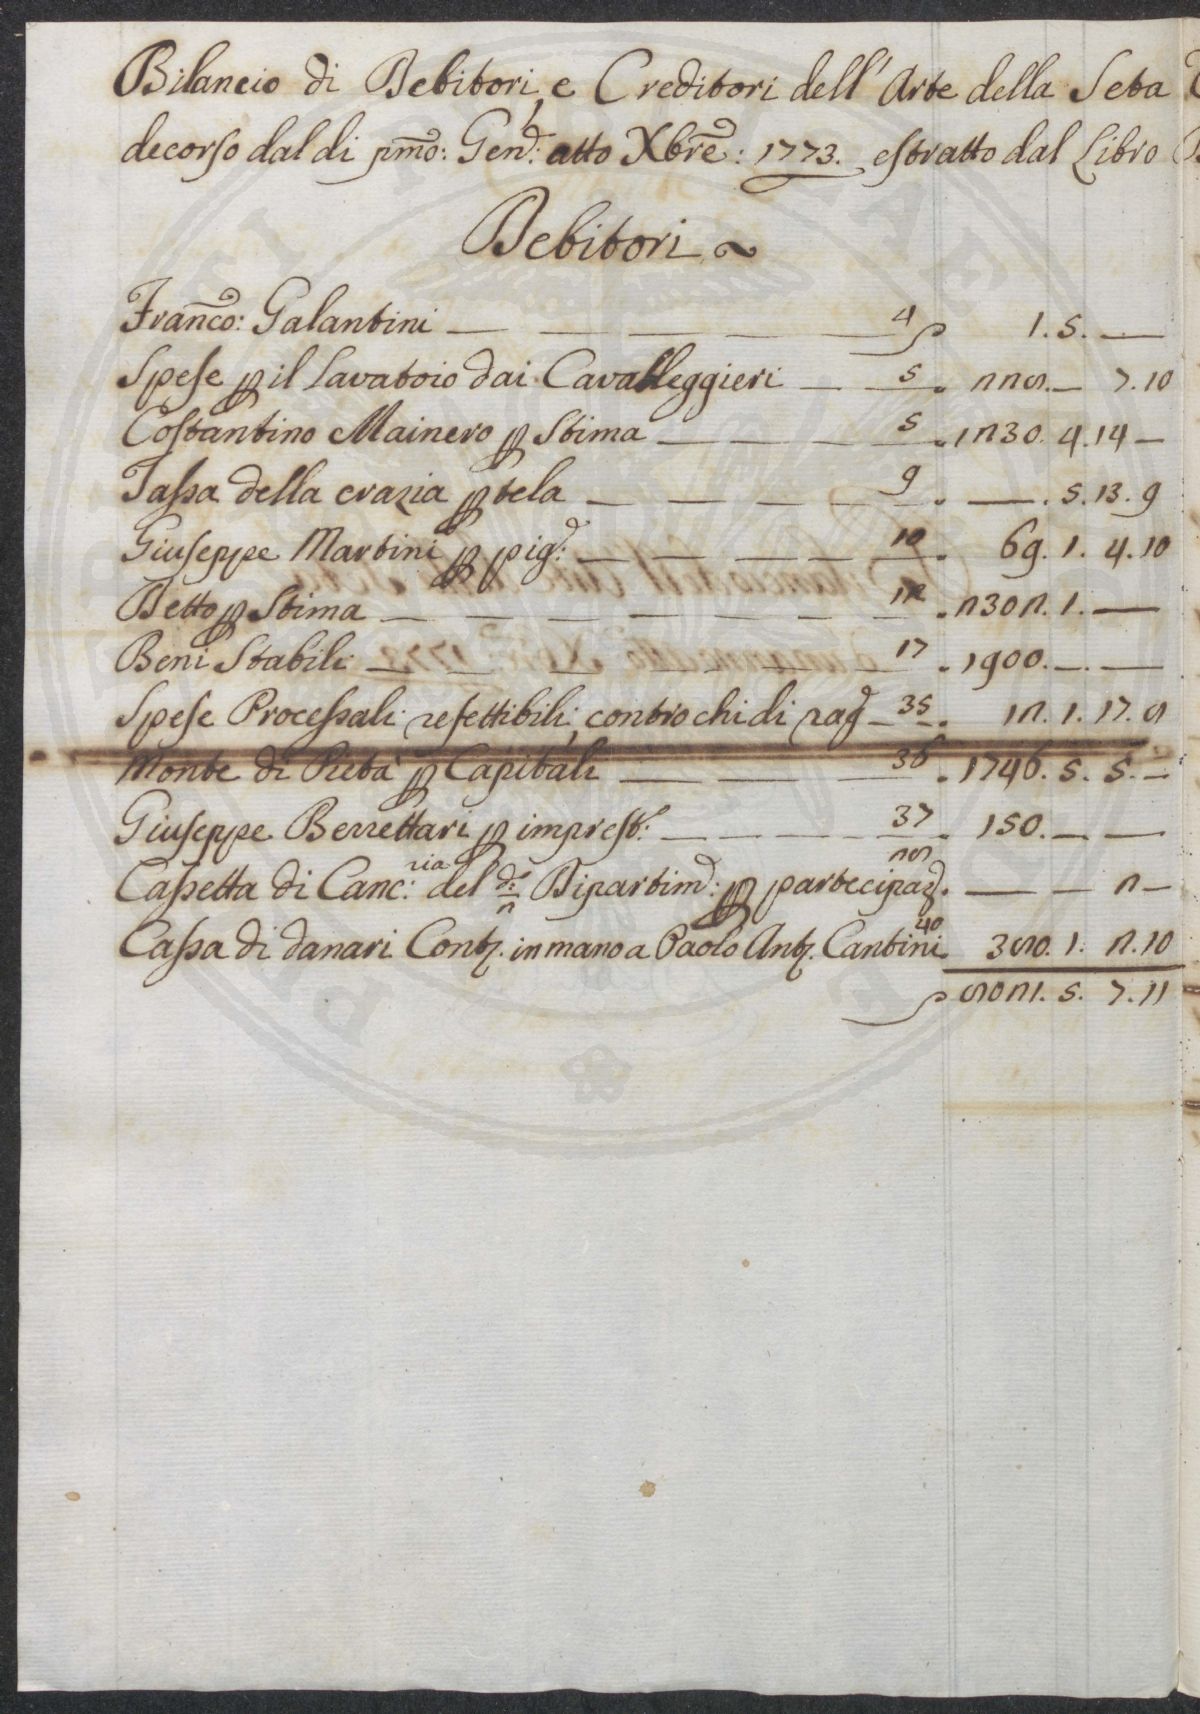 Bilancio di Debitori, e Creditori dell' Arte della Seta
decorso dal di pmo: Gen: atto Xbre: 1773. estratto dal Libro
Debitori ~
Franco: Galantini — — — — 4 1. 5. —
Spese p il Lavatoio dai Cavalleggieri — 5. 228. — 7. 10
Costantino Mainero p Stima — — — 5. 1230. 4. 14 —
Tassa della crazia p tela — — — 9. — . 5. 13. 9
Giuseppe Martini p pig: — — — — 10. 69. 1. 4. 10
Detto p Stima — — — — — — 12. 2302. 1. —
Beni Stabili — — — — — 17. 1900. — . —
Spese Processali refettibili, contro chi di rag — 35. 12. 1. 17. 8
Monte di Pietà p Capitali — — — 36. 1746. 5. 5. —
Giuseppe Berrettari p imprest: — — — — 37. 150. — —
Cassetta di Canc:ria del d: 2 Dipartim: p partecipaz. 28 — — 2 —
Cassa di danari Cont. in mano a Paolo Ant. Cantini 40. 380. 1. 2. 10
8021. 5. 7. 11